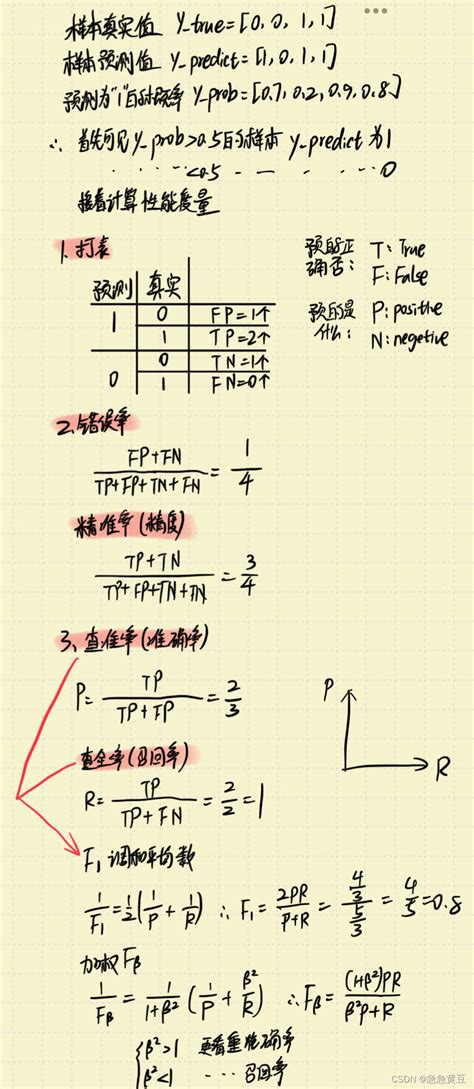 样本真实值 Y_true=[0, 0, 1, 1]
样本预测值 Y_predict=[1, 0, 1, 1]
预测为"1"的概率 Y_prob=[0.7, 0.2, 0.9, 0.8]
∴ 首先可见 y_prob>0.5的样本 y_predict 为1
<0.5 - - - - 0
接着计算性能度量
1. 打表
预测的正确否: T: True
F: False
预测的是什么: P: positive
N: negetive
预测 真实
1 0 FP=1个
1 TP=2个
0 0 TN=1个
1 FN=0个
2. 错误率
FP+FN / TP+FP+TN+FN = 1/4
精准率(精度)
TP+TN / TP+FP+TN+TN = 3/4
3. 查准率(准确率)
P= TP / TP+FP = 2/3
P
R
查全率(召回率)
R= TP / TP+FN = 2/2 = 1
F₁ 调和平均数
1/F₁ = 1/2 (1/P + 1/R) ∴ F₁ = 2PR / P+R = 4/3 / 5/3 = 4/5 = 0.8
加权 Fβ
1/Fβ = 1/1+β² (1/P + β²/R) ∴ Fβ = (1+β²)PR / β²P+R
{ β²>1 更看重准确率
β²<1 ··· 召回率
CSDN @急急黄豆